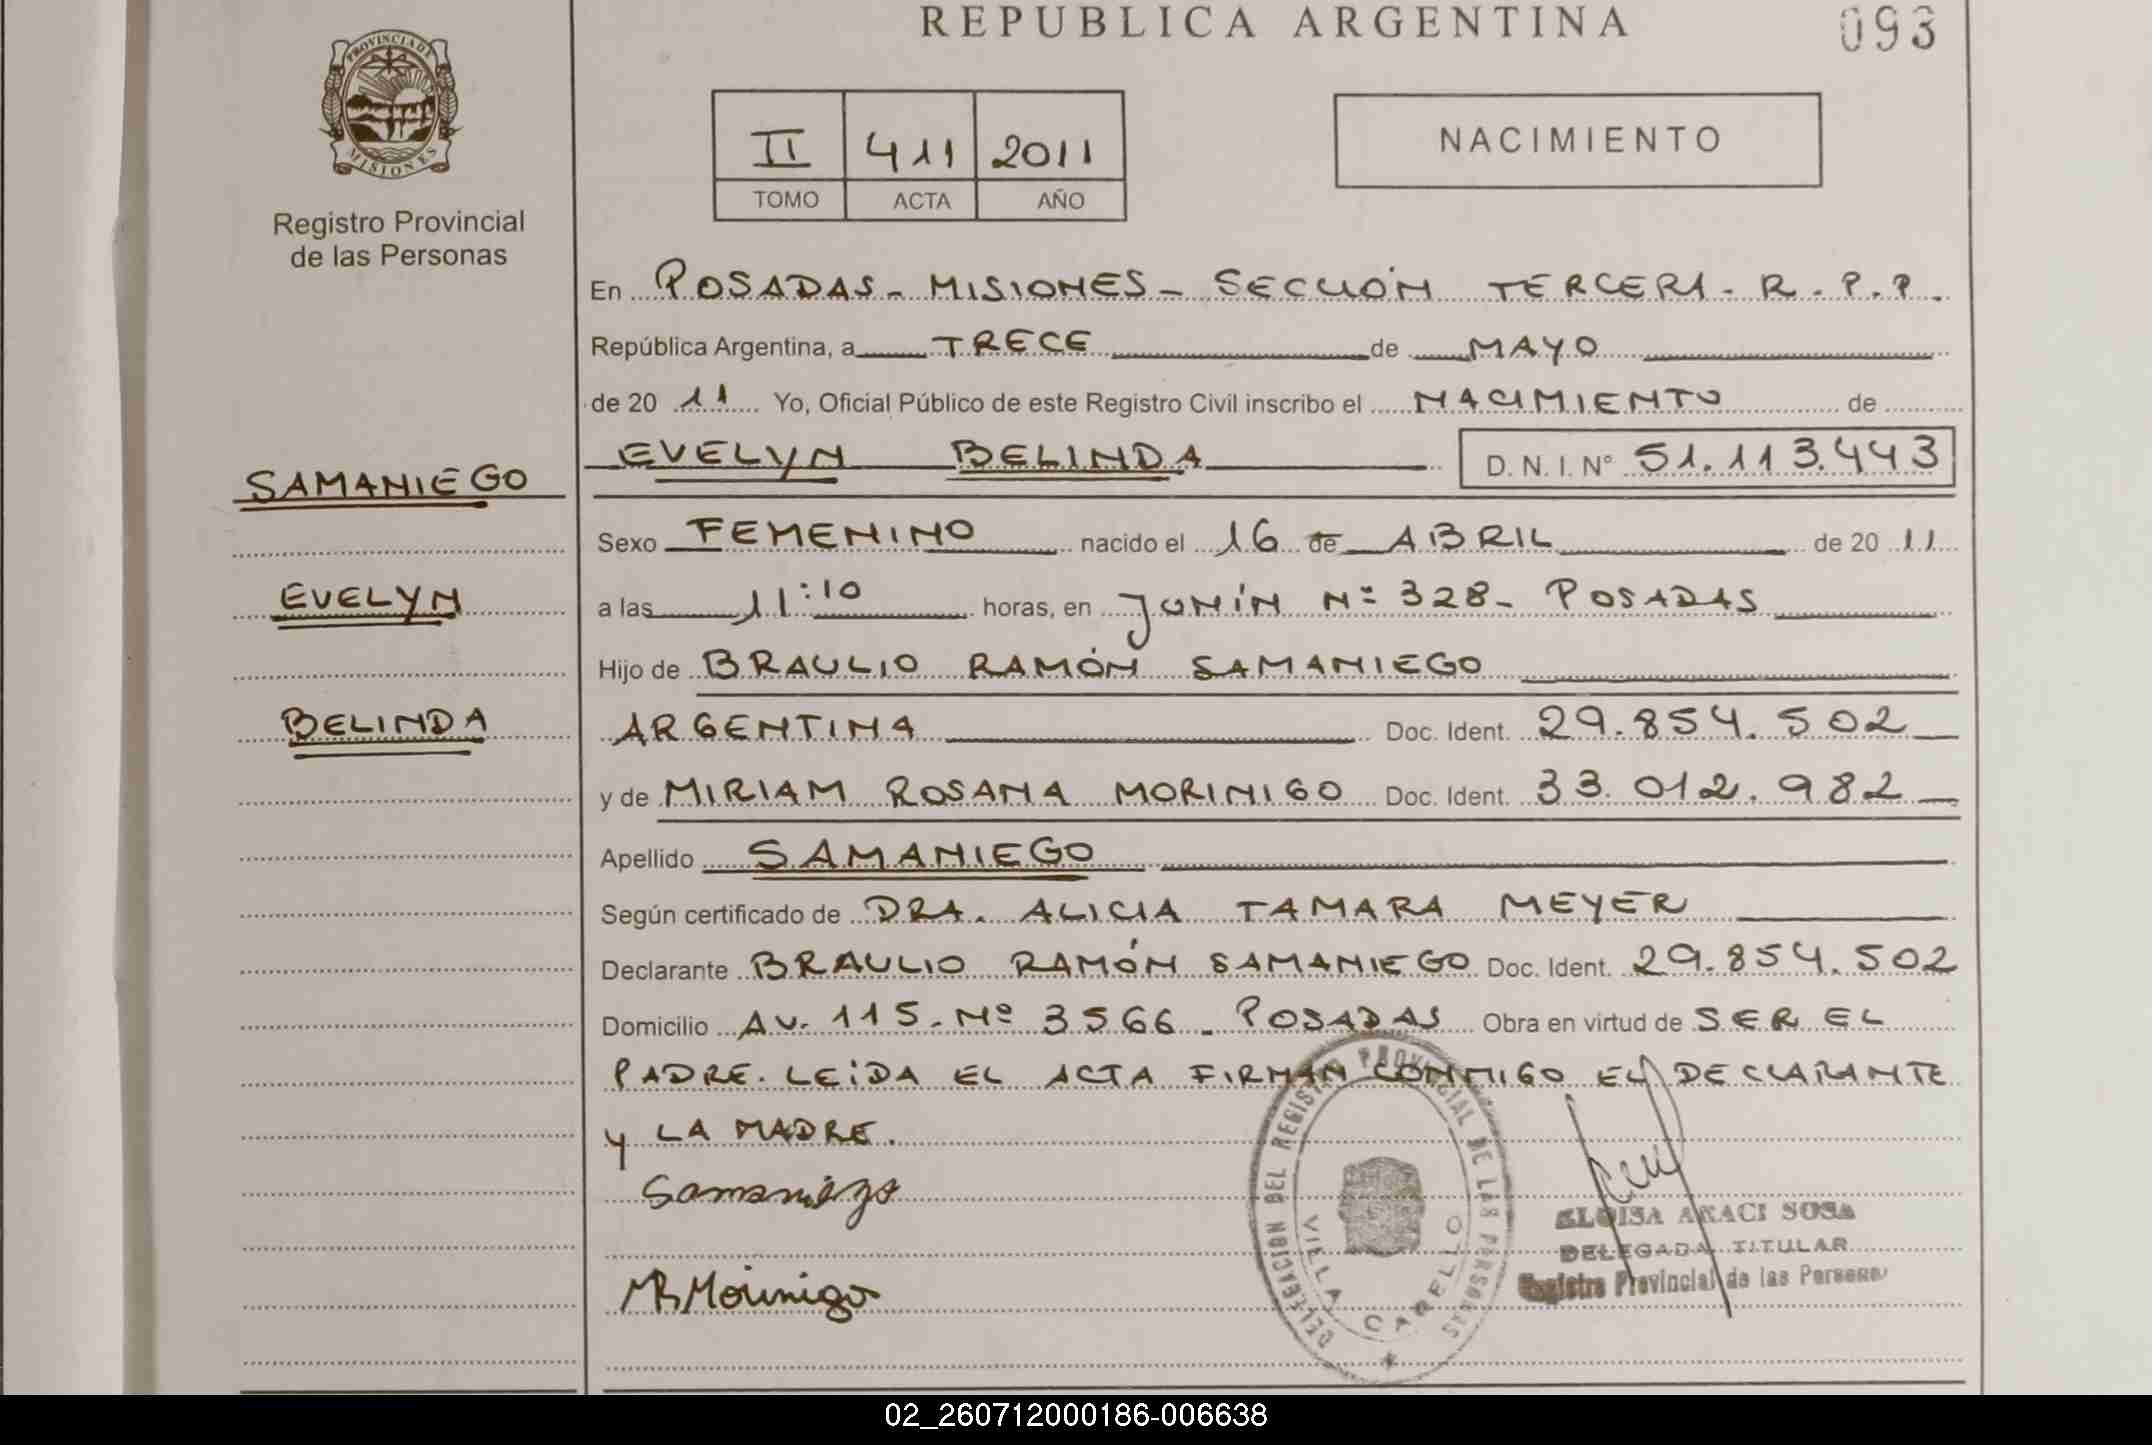 REPUBLICA ARGENTINA
093
PROVINCIA DE
MISIONES
Registro Provincial
de las Personas
II 411 2011
TOMO ACTA AÑO
NACIMIENTO
En POSADAS - MISIONES - SECCIÓN TERCERA - R.P.P.
República Argentina, a TRECE de MAYO
de 20 11 Yo, Oficial Público de este Registro Civil inscribo el NACIMIENTO de
EVELYN BELINDA D. N. I. N° 51.113.443
SAMANIEGO
Sexo FEMENINO nacido el 16 de ABRIL de 20 11
EVELYN
a las 11:10 horas, en JUNÍN Nº 328 - POSADAS
Hijo de BRAULIO RAMÓN SAMANIEGO
BELINDA
ARGENTINA Doc. Ident. 29.854.502
y de MIRIAM ROSANA MORINIGO Doc. Ident. 33.012.982
Apellido SAMANIEGO
Según certificado de DRA. ALICIA TAMARA MEYER
Declarante BRAULIO RAMÓN SAMANIEGO Doc. Ident. 29.854.502
Domicilio AV. 115. Nº 3566 - POSADAS Obra en virtud de SER EL
PADRE. LEÍDA EL ACTA FIRMAN CONMIGO EL DECLARANTE
Y LA MADRE.
Samaniego
MRMorinigo
DELEGACION DEL REGISTRO PROVINCIAL DE LAS PERSONAS
VILLA CABELLO
ELOISA ARACI SOSA
DELEGADA TITULAR
Registro Provincial de las Personas
02_260712000186-006638